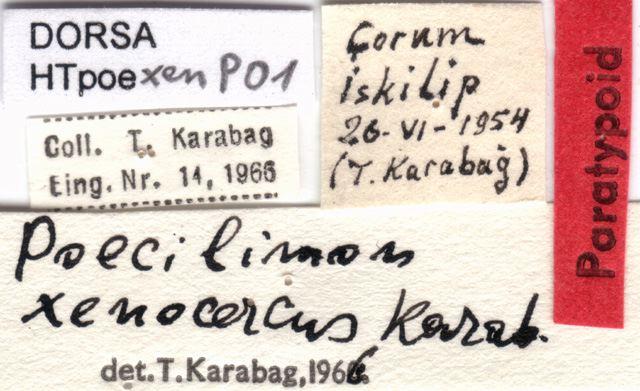 DORSA
HTpoexen P01
Coll. T. Karabag
Eing. Nr. 14, 1966
Çorum
İskilip
26-VI-1954
(T. Karabağ)
Paratypoid
Poecilimon
xenocercus Karab.
det. T. Karabag, 1966.